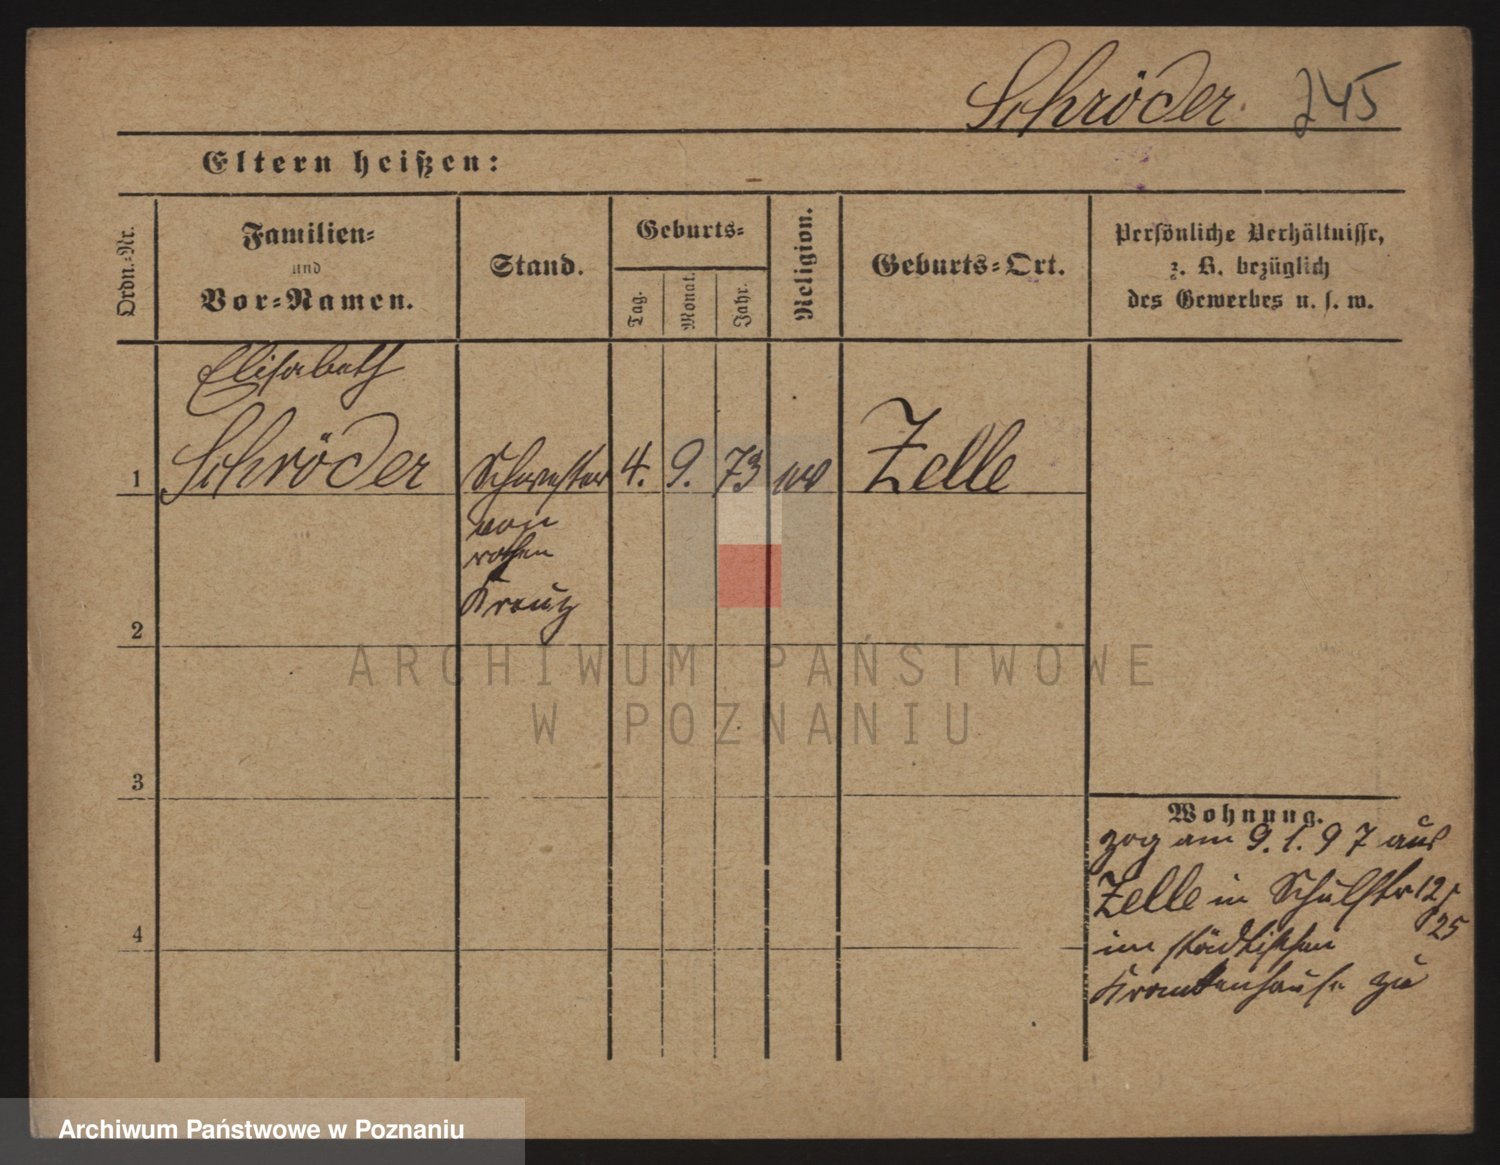 Schröder 245
Eltern heißen:
Ordn.-Nr.
Familien-
und
Vor-Namen.
Stand.
Geburts-
Tag.
Monat.
Jahr.
Religion.
Geburts-Ort.
Persönliche Verhältnisse,
z. B. bezüglich
des Gewerbes u. s. w.
Elisabeth
1 Schröder Schwester 4. 9. 73 Zelle
von
rothen
Kreuz
2
3
4
Wohnung.
zog am 9. 1. 97 aus
Zelle in Schulstr 12/
25
im städtischen
Krankenhause zu
ARCHIWUM PAŃSTWOWE
W POZNANIU
Archiwum Państwowe w Poznaniu